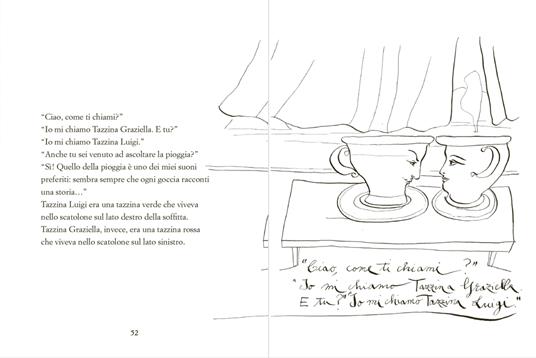 “Ciao, come ti chiami?”
“Io mi chiamo Tazzina Graziella. E tu?”
“Io mi chiamo Tazzina Luigi.”
“Anche tu sei venuto ad ascoltare la pioggia?”
“Sì! Quello della pioggia è uno dei miei suoni
preferiti: sembra sempre che ogni goccia racconti
una storia…”
Tazzina Luigi era una tazzina verde che viveva
nello scatolone sul lato destro della soffitta.
Tazzina Graziella, invece, era una tazzina rossa
che viveva nello scatolone sul lato sinistro.
52
"Ciao, come ti chiami ?"
"Io mi chiamo Tazzina Graziella.
E tu?" "Io mi chiamo Tazzina Luigi."